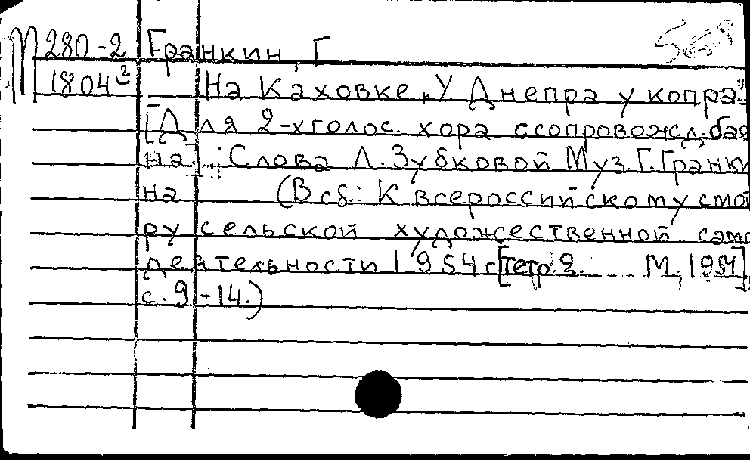 М 280-2 Гранкин, Г. 568
1804² На Каховке. „У Днепра у копра"
[Для 2-хголос. хора с сопровожд. бая
на] : Слова Л. Зубковой Муз. Г. Гранки
на (В сб: К всероссийскому смот
ру сельской художественной само
деятельности 1954 г [тетр 2. ... М., 1954],
с. 9-14.)